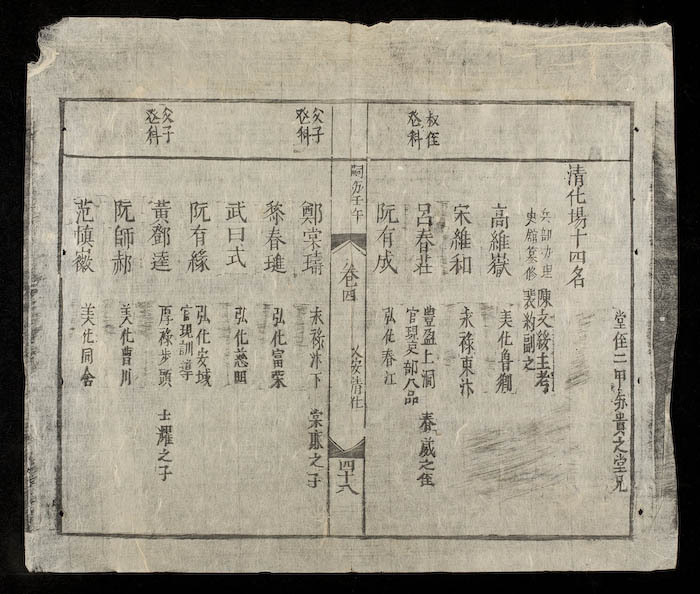 堂侄二甲亦貴之堂兄
清化場十四名
兵部办理 陳文綏主考
史館纂修 裴約副之
高維嶽 美化魯鄉
宋維和 永祿東汴
叔侄
登科
呂春莊 豐盈上洞 春葳之侄
官現吏部八品
阮有成 弘化春江
嗣 壬午
卷四
乂安清化
四十八
父子
登科
鄭棠 永祿汴下 棠 之子
黎春璡 弘化富柴
武曰式 弘化慈
阮有緣 弘化安域
官現訓導
父子
登科
黃鄧逵 厚祿步頭 士耀之子
阮師郝 美化曹川
范慎徽 美化同舍